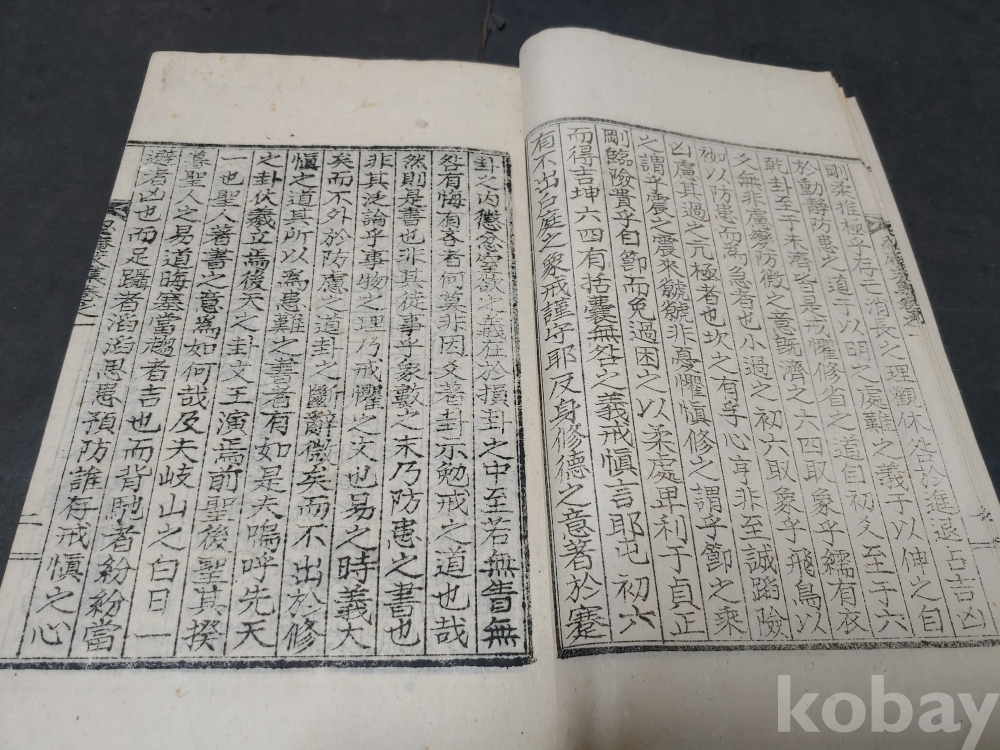 剛柔推極乎存亡消長之理觀休咎於進退占吉凶
於動靜防患之道于以明之處難之義于以伸之自
乾卦至于未濟皆是戒懼修省之道自初爻至于六
爻無非慮憂防微之意旣濟之六四取象乎繻有衣
袽以防患而爲急者也小過之初六取象乎飛鳥以
凶慮其過之亢極者也坎之有孚心亨非至誠蹈險
之謂乎震之震來虩虩非憂懼愼修之謂乎節之乘
剛臨險豈乎自節而免過困之以柔處卑利于貞正
而得吉坤六四有括囊無咎之義戒愼言耶屯初六
有不出戶庭之象戒謹守耶反身修德之意著於蹇
卦之內懲忿窒欲之義在於損卦之中至若無眚無
咎有悔有吝者何莫非因爻著卦示勉戒之道也哉
然則是書也非其徒事乎象數之末乃防患之書也
非其泛論乎事物之理乃戒懼之文也易之時義大
矣而不外於防慮之道卦之斷辭微矣而不出於修
愼之道其所以爲患難之書者有如是夫嗚呼先天
之卦伏羲立焉後天之卦文王演焉前聖後聖其揆
一也聖人著書之意爲如何哉及夫岐山之白日一
暮聖人之易道晦塞當趨者吉也而背馳者紛紛當
避者凶也而足躡者滔滔思患預防誰存戒愼之心